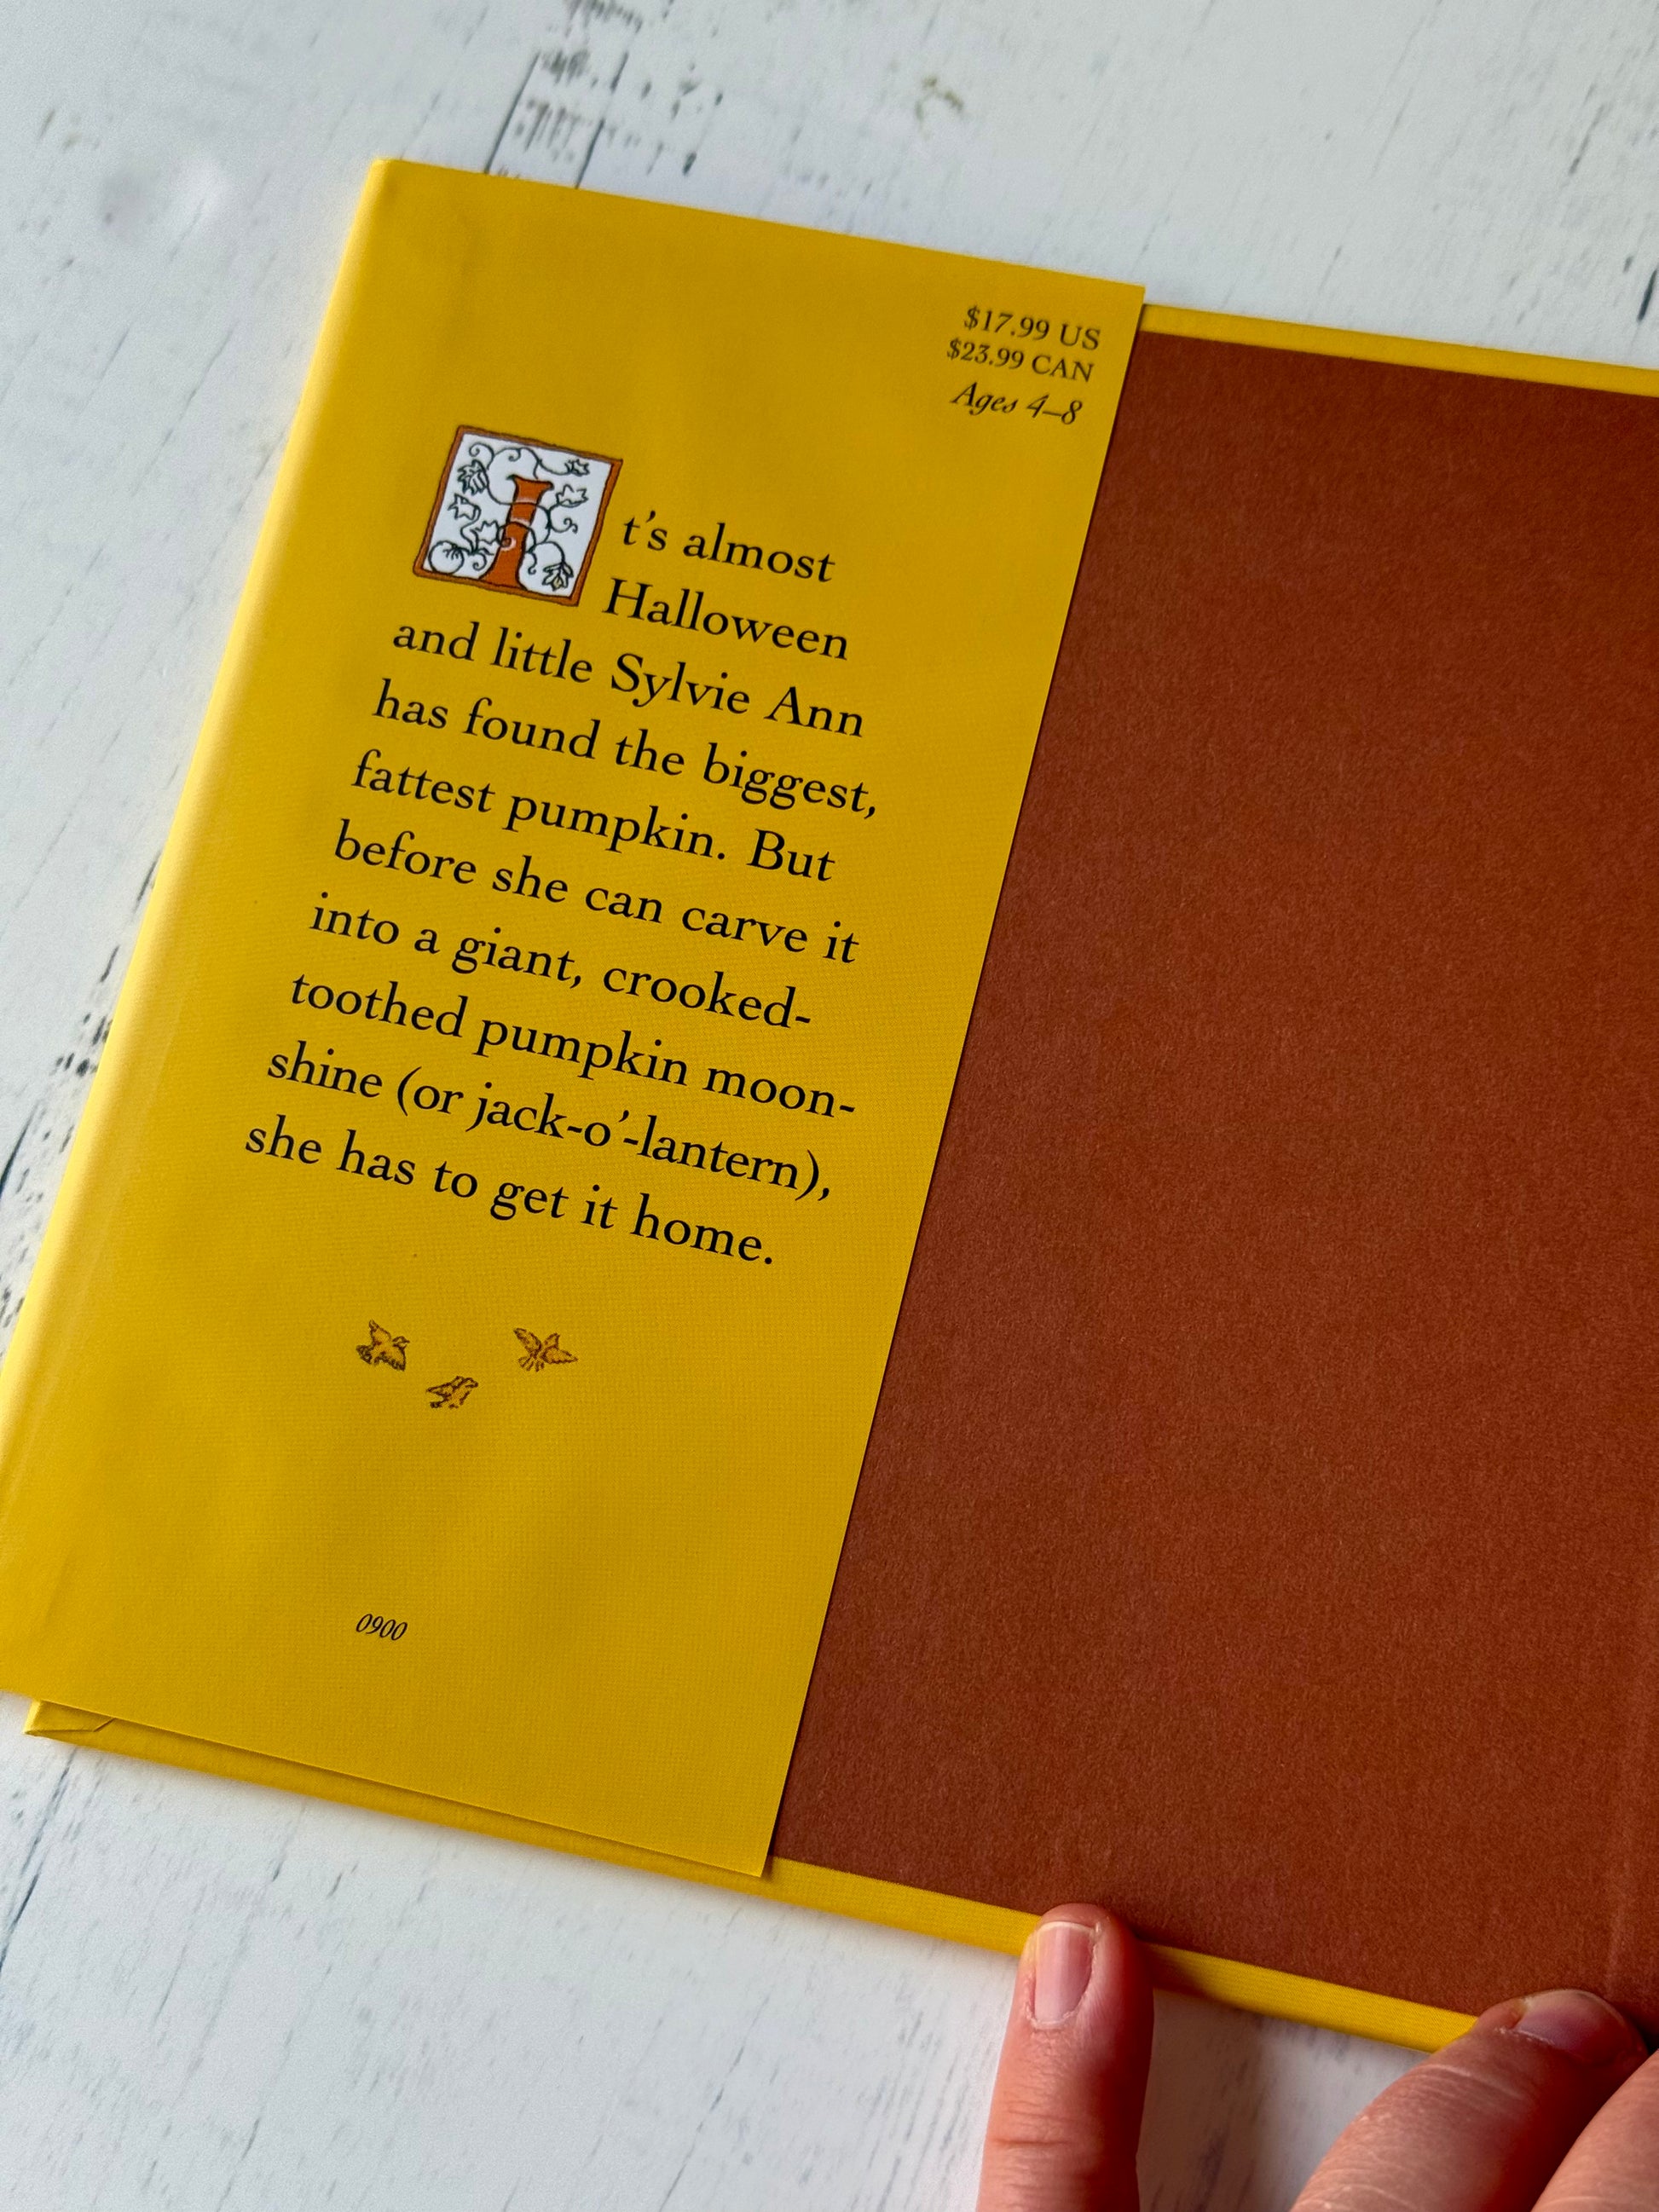 $17.99 US
$23.99 CAN
Ages 4–8
It’s almost
Halloween
and little Sylvie Ann
has found the biggest,
fattest pumpkin. But
before she can carve it
into a giant, crooked-
toothed pumpkin moon-
shine (or jack-o’-lantern),
she has to get it home.
0900